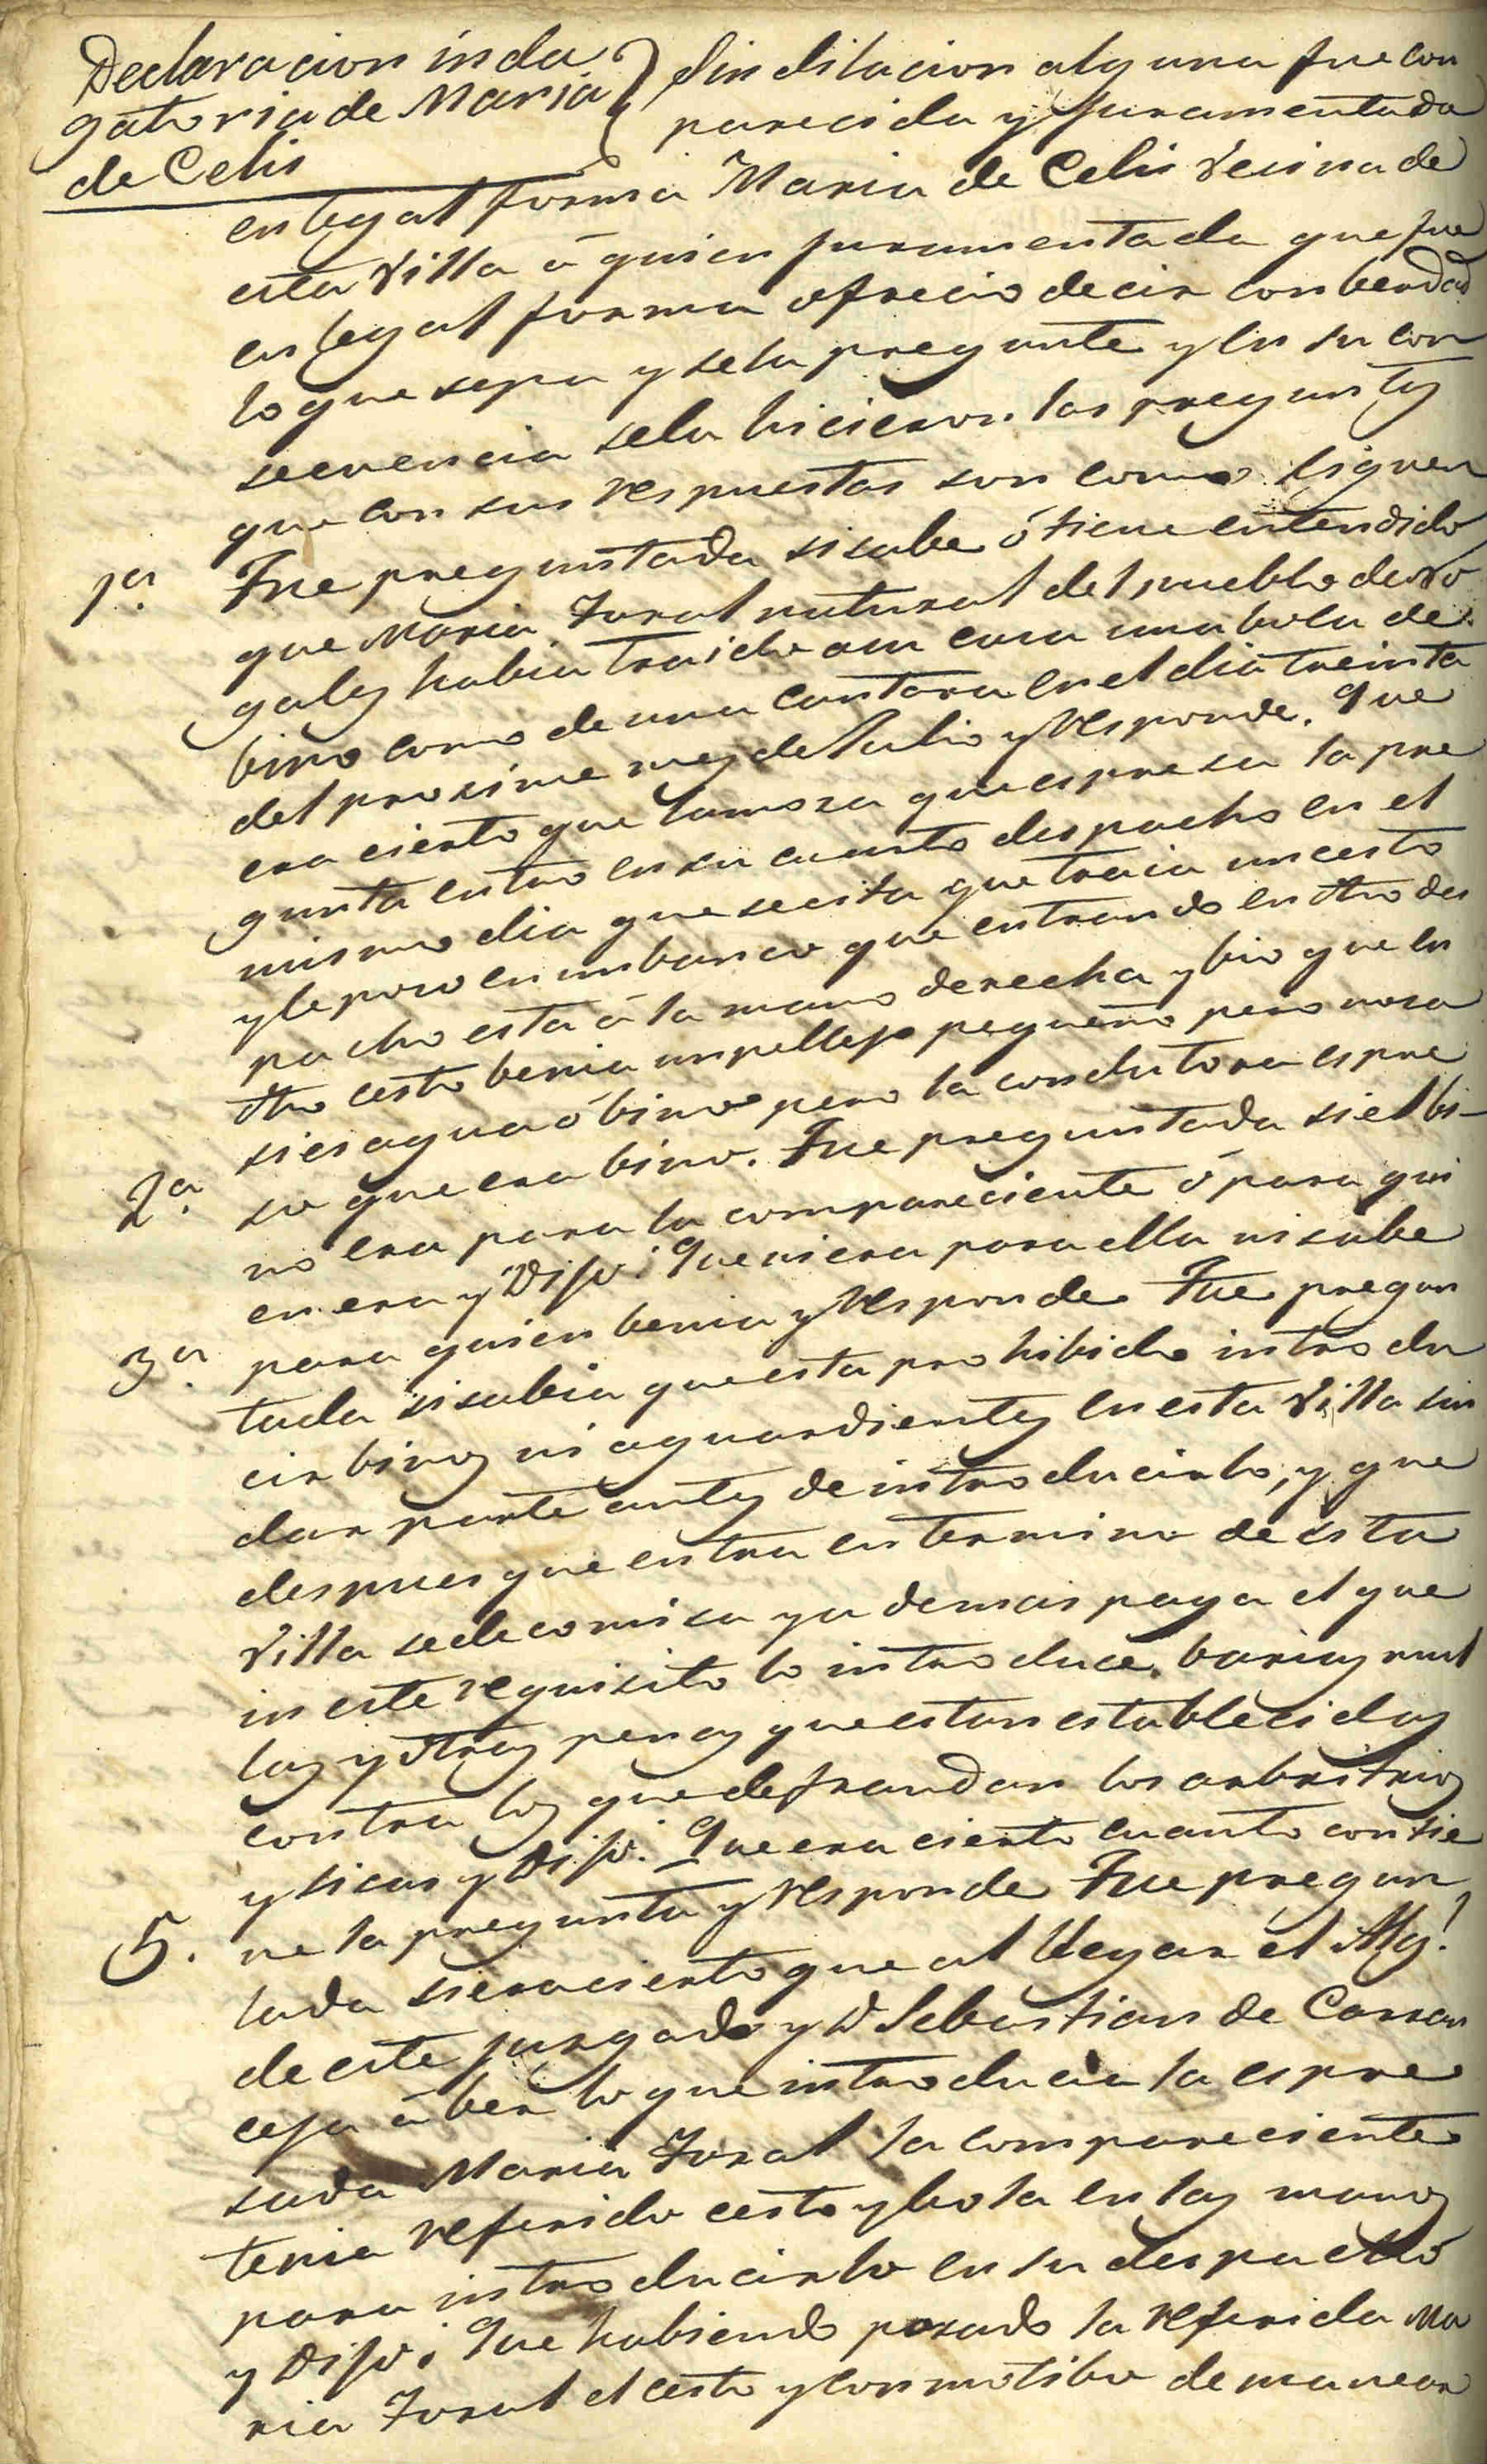 Declaracion inda
gatoria de Maria
de Celis
Sin dilacion alguna fue con
parecida y juramentada
en legal forma Maria de Celis Vecina de
esta Villa á quien juramentada que fue
en legal forma ofrecio decir con berdad
lo que sepa y se la pregunte y en su con
secuencia se la hicieron las preguntas
que con sus respuestas son como siguen
1ª. Fue preguntada si sabe ó tiene entendido
que Maria Toral natural del pueblo de No
gales habia traido a su casa una bota de
bino como de una cantara en el dia treinta
del prosimo mes de Julio y Responde. Que
era cierto que la moza que espresa la pre
gunta entro en su cuarto despacho en el
mismo dia que se cita que traia un cesto
y le poso en un banco que entrando en dho des
pacho esta á la mano derecha y bio que en
dho cesto benia un pellejo pequeño pero no sa
si es agua ó bino pero la condutora espre
2ª. so que era bino. Fue preguntada si el bi-
no era para la compareciente ó para qui
en era y Dijo: Que ni era para ella ni sabe
para quien benia y Responde Fue pregun
3ª. tada si sabia que esta prohibido introdu
cir binos ni aguardientes en esta Villa sin
dar parte antes de introducirlo, y que
despues que entra en termino de esta
Villa se decomisa y a demas paga el que
in este requisito lo introduce, barias mul
tas y otras penas que estan establecidas
contra los que defraudan los arbritrios
y sicas y Dijo: Que era cierto cuanto contie
ne la pregunta y Responde Fue pregun
5. tada si era cierto que al llegar el Alg.l
de este juzgado y D Sebastian de Carran
ceja á ber lo que introducia la espre
sada Maria Toral la compareciente
tenia referido cesto y bota en las manos
para introducirlo en su despacho
y Dijo: Que habiendo posado la referida Ma
ria Toral el cesto y con motibo de manear